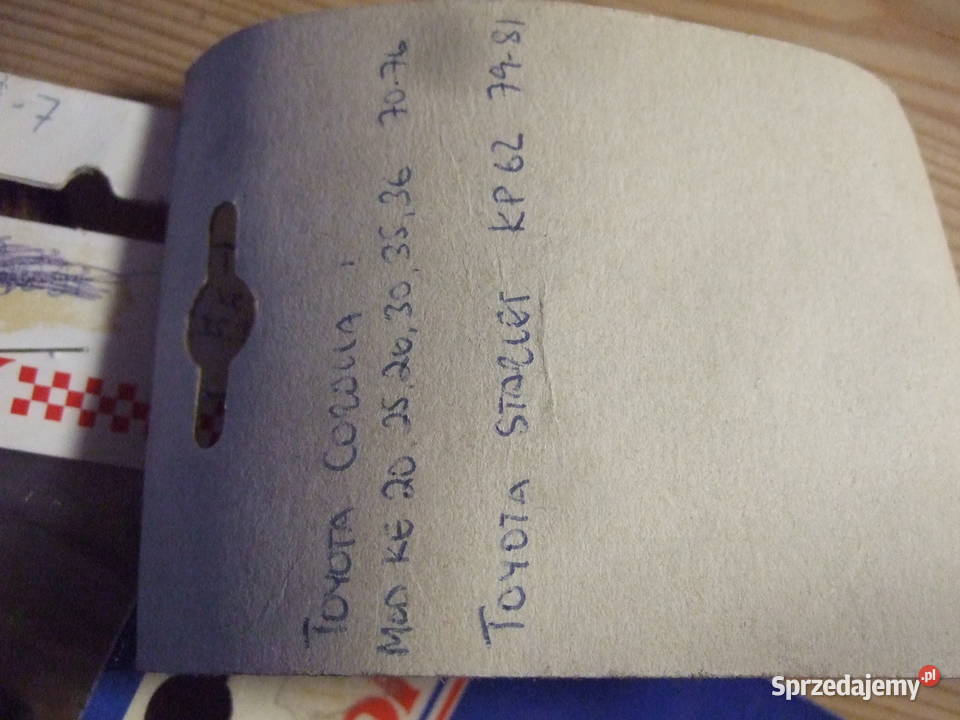 TOYOTA COROLLA,
MOD KE 20, 25, 26, 30, 35, 36 70-76
TOYOTA STARLET KP62 79-81
-7
Sprzedajemy.pl